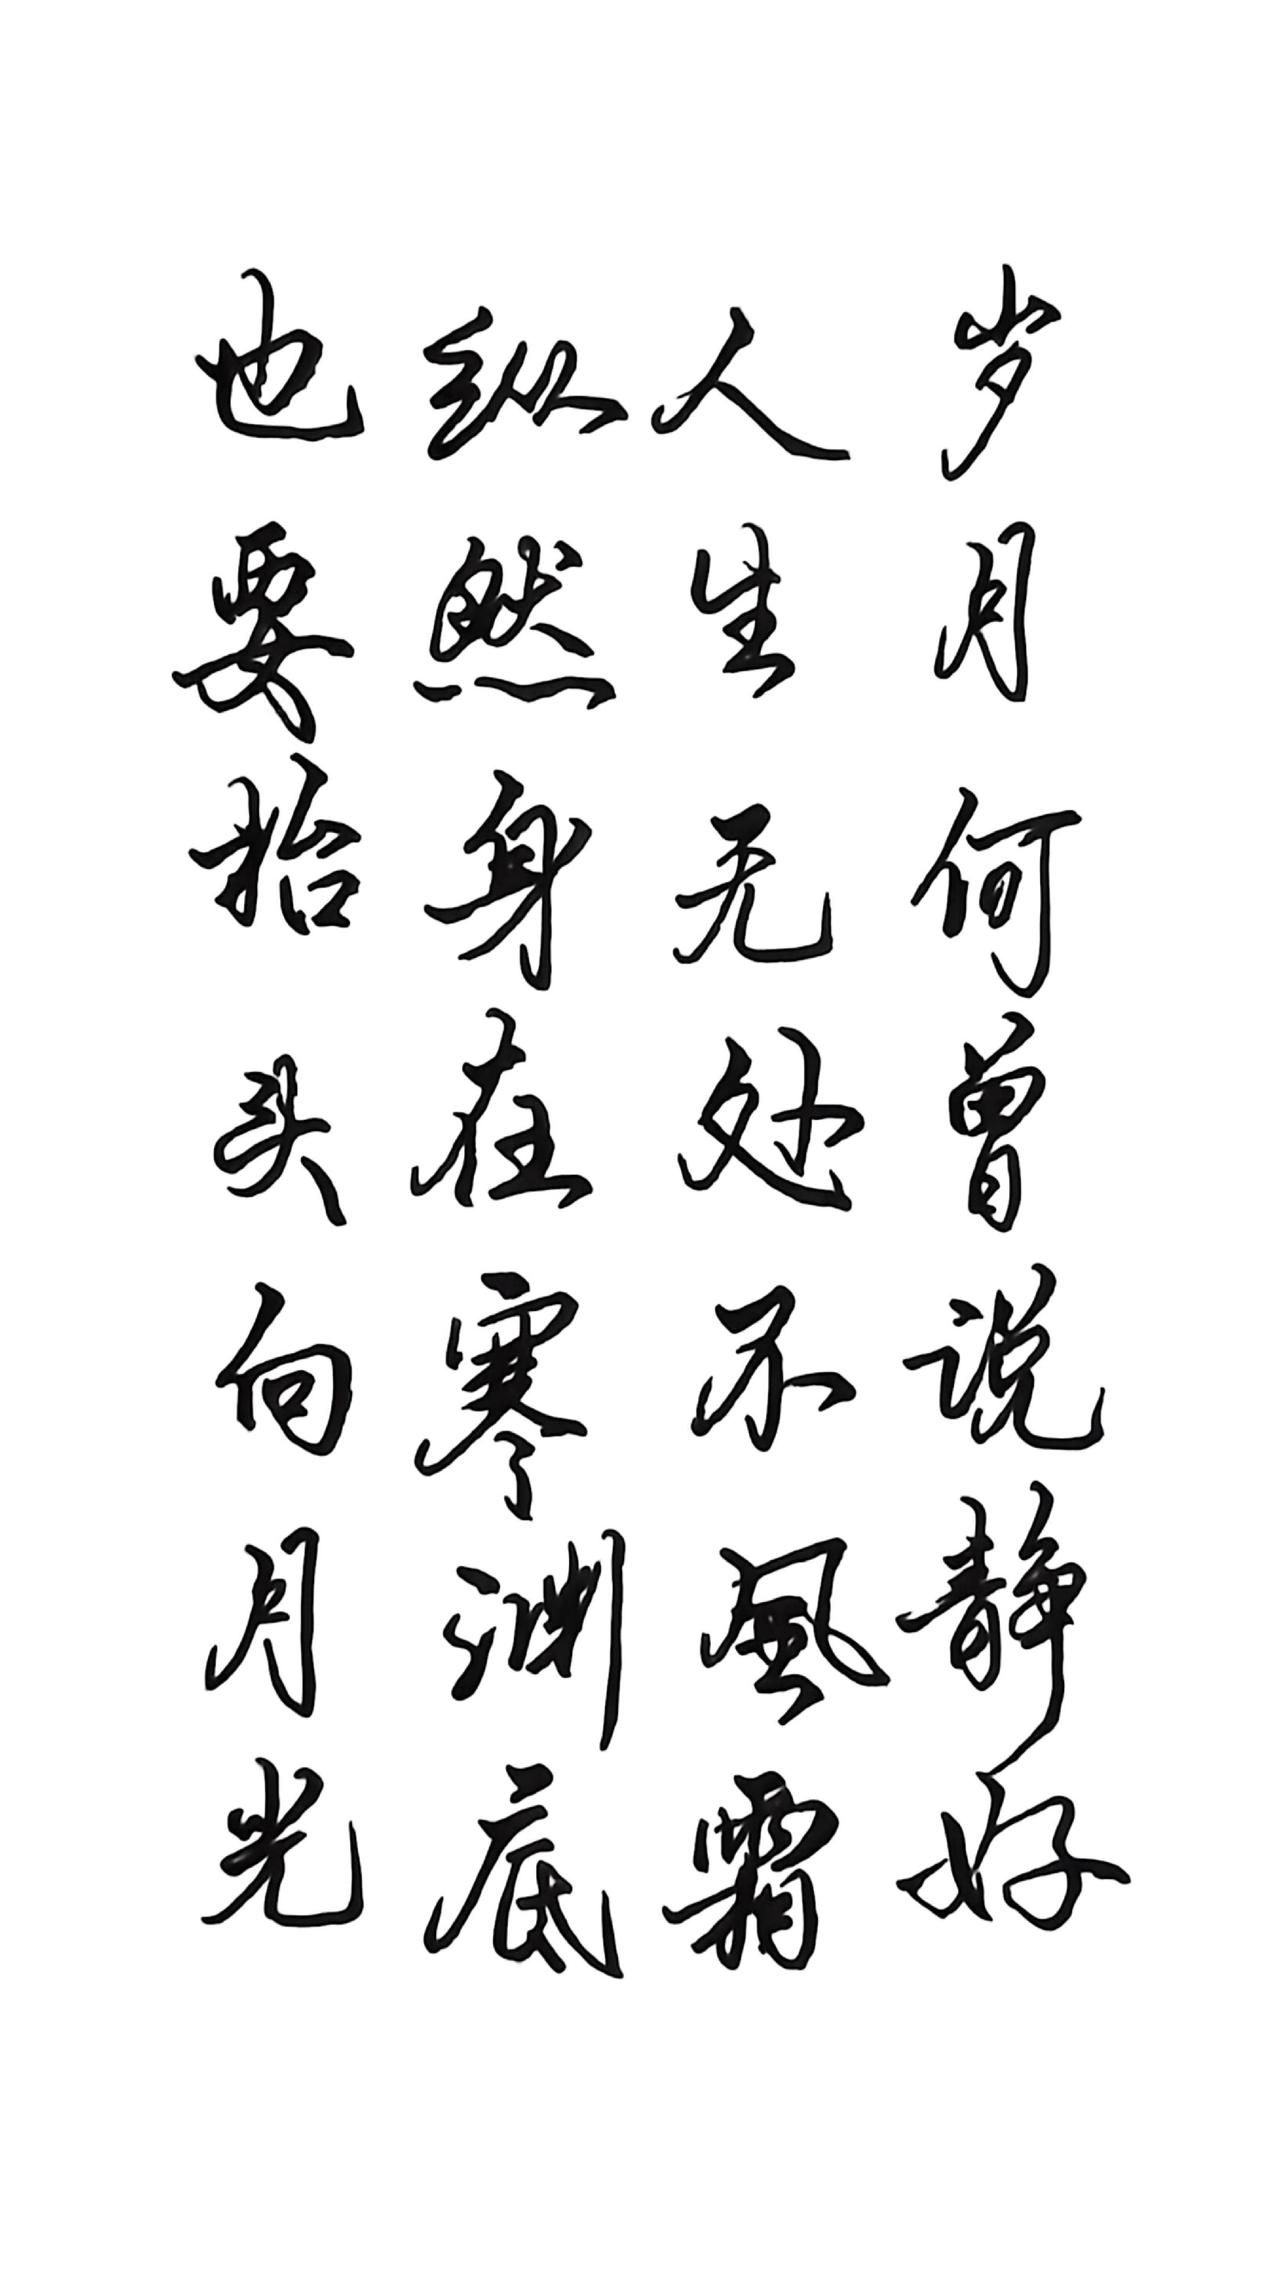 岁月何曾说静好
人生无处不風霜
纵然身在寒渊底
也要抬头向月光